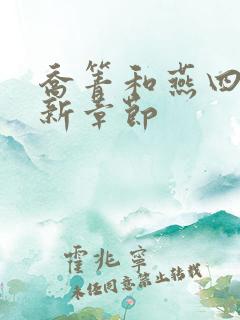 乔箐和燕四
新章节
霍兆宁
未经同意禁止转载